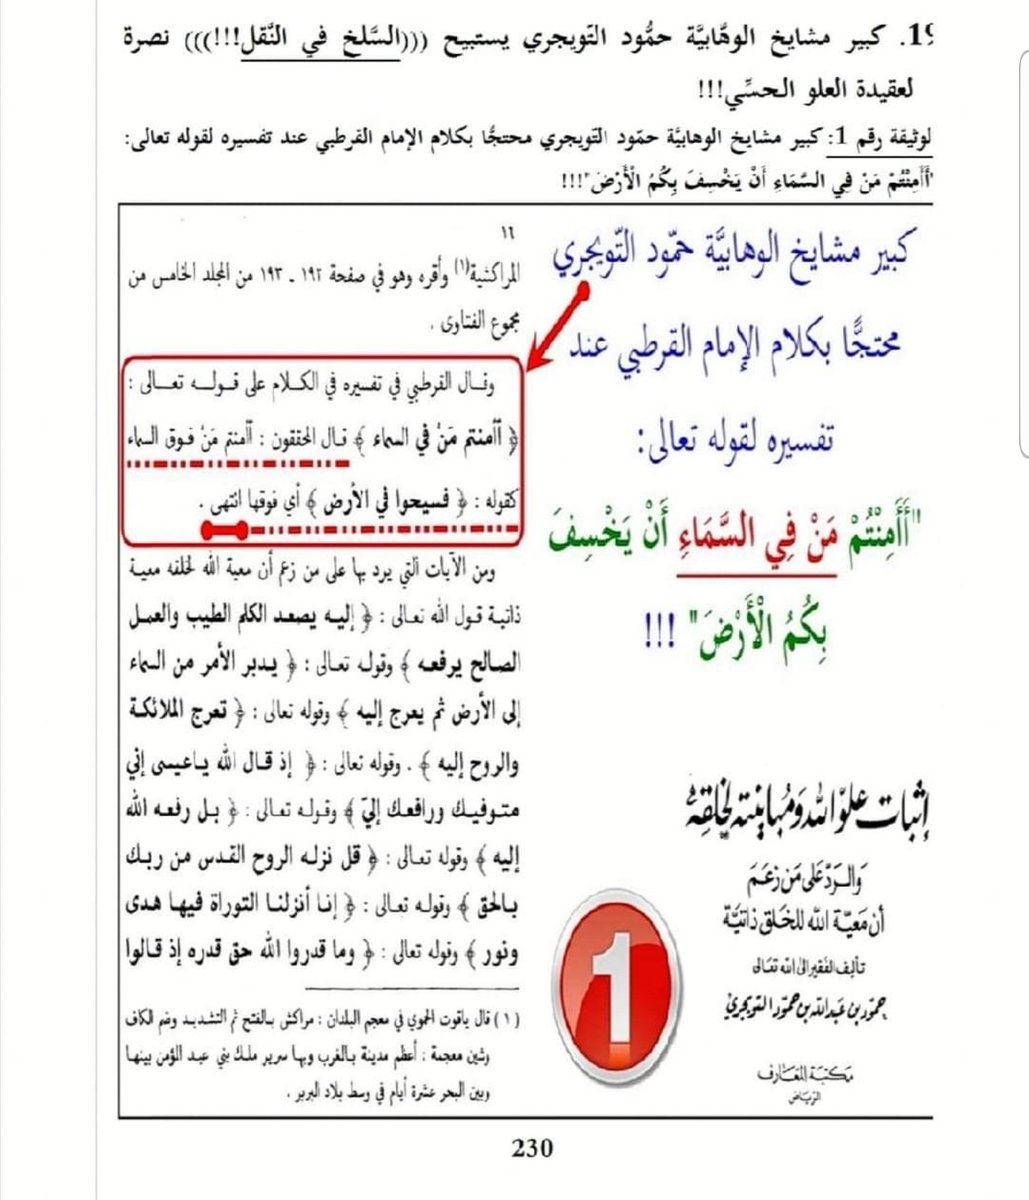 19. كبير مشايخ الوهَّابيَّة حمُّود التّويجري يستبيح (((السَّلخ في النَّقل!!!))) نصرة
لعقيدة العلو الحسِّي!!!
لوثيقة رقم 1: كبير مشايخ الوهابيَّة حمّود التّويجري محتجًّا بكلام الإمام القرطبي عند تفسيره لقوله تعالى:
"أَأَمِنْتُمْ مَنْ فِي السَّمَاءِ أَنْ يَخْسِفَ بِكُمُ الْأَرْضَ"!!!
كبير مشايخ الوهابيَّة حمّود التّويجري
محتجًّا بكلام الإمام القرطبي عند
تفسيره لقوله تعالى:
"أَأَمِنْتُمْ مَنْ فِي السَّمَاءِ أَنْ يَخْسِفَ
بِكُمُ الْأَرْضَ" !!!
إثبات علوّ الله ومباينته لخلقه
والرد على من زعم
أن معيّة الله للخلق ذاتيّة
تأليف الفقير إلى الله تعالى
حمود بن عبدالله بن حمود التويجري
مكتبة المعارف
الرياض
1
١٦
المراكشية(١) وأقره وهو في صفحة ١٩٢ ـ ١٩٣ من المجلد الخامس من
مجموع الفتاوى .
وقال القرطبي في تفسيره في الكلام على قوله تعالى :
﴿ أأمنتم مَنْ في السماء ﴾ قال المحققون : أأمنتم مَنْ فوق السماء
كقوله : ﴿ فسيحوا في الأرض ﴾ أي فوقها انتهى .
ومن الآيات التي يرد بها على من زعم أن معية الله لخلقه معية
ذاتية قول الله تعالى : ﴿ إليه يصعد الكلم الطيب والعمل
الصالح يرفعه ﴾ وقوله تعالى : ﴿ يدبر الأمر من السماء
إلى الأرض ثم يعرج إليه ﴾ وقوله تعالى : ﴿ تعرج الملائكة
والروح إليه ﴾ . وقوله تعالى : ﴿ إذ قال الله ياعيسى إني
متوفيك ورافعك إليّ ﴾ وقوله تعالى : ﴿ بل رفعه الله
إليه ﴾ وقوله تعالى : ﴿ قل نزله الروح القدس من ربك
بالحق ﴾ وقوله تعالى : ﴿ إنا أنزلنا التوراة فيها هدى
ونور ﴾ وقوله تعالى : ﴿ وما قدروا الله حق قدره إذ قالوا
(١) قال ياقوت الحموي في معجم البلدان : مراكش بالفتح ثم التشديد وضم الكاف
وشين معجمة : أعظم مدينة بالمغرب وبها سرير ملك بني عبد المؤمن بينها
وبين البحر عشرة أيام في وسط بلاد البربر .
230